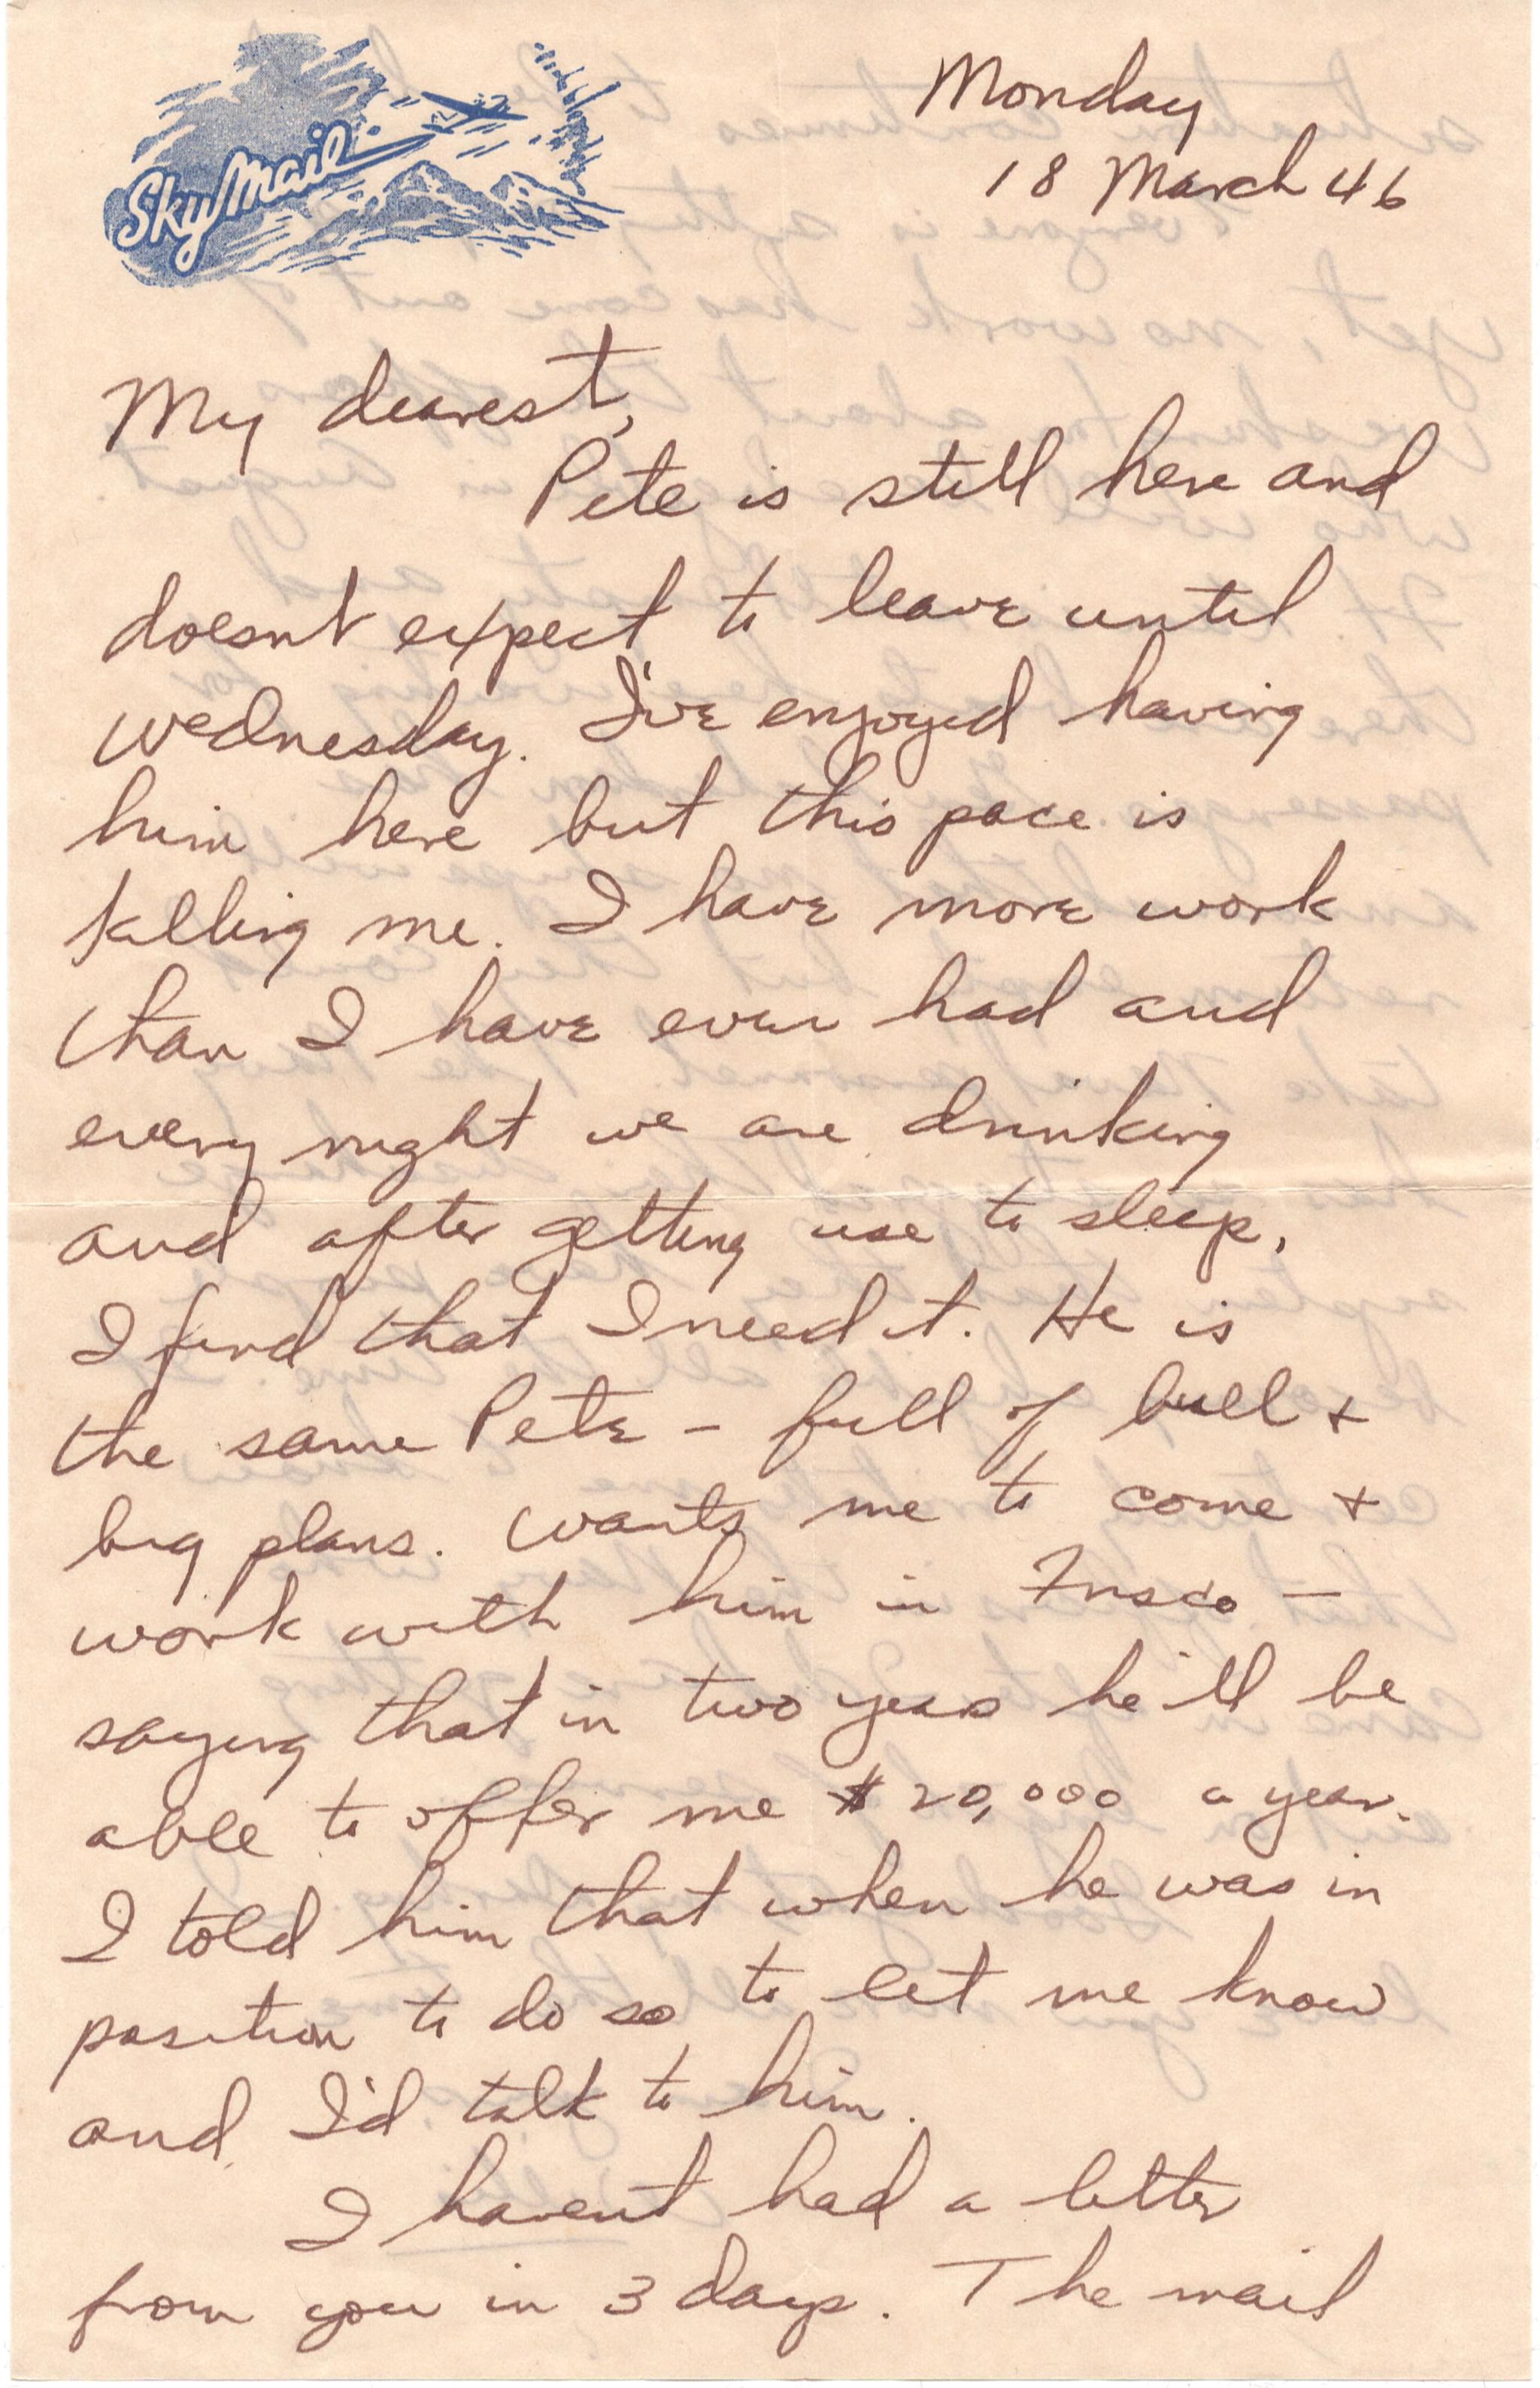 Sky Mail
Monday
18 March 46
My dearest,
Pete is still here and
doesnt expect to leave until
Wednesday. I've enjoyed having
him here but this pace is
killing me. I have more work
than I have ever had and
every night we are drinking
and after getting use to sleep,
I find that I need it. He is
the same Pete – full of bull +
big plans. Wants me to come +
work with him in Frisco –
saying that in two years he'll be
able to offer me $20,000 a year.
I told him that when he was in
position to do so to let me know
and I'd talk to him.
I havent had a letter
from you in 3 days. The mail